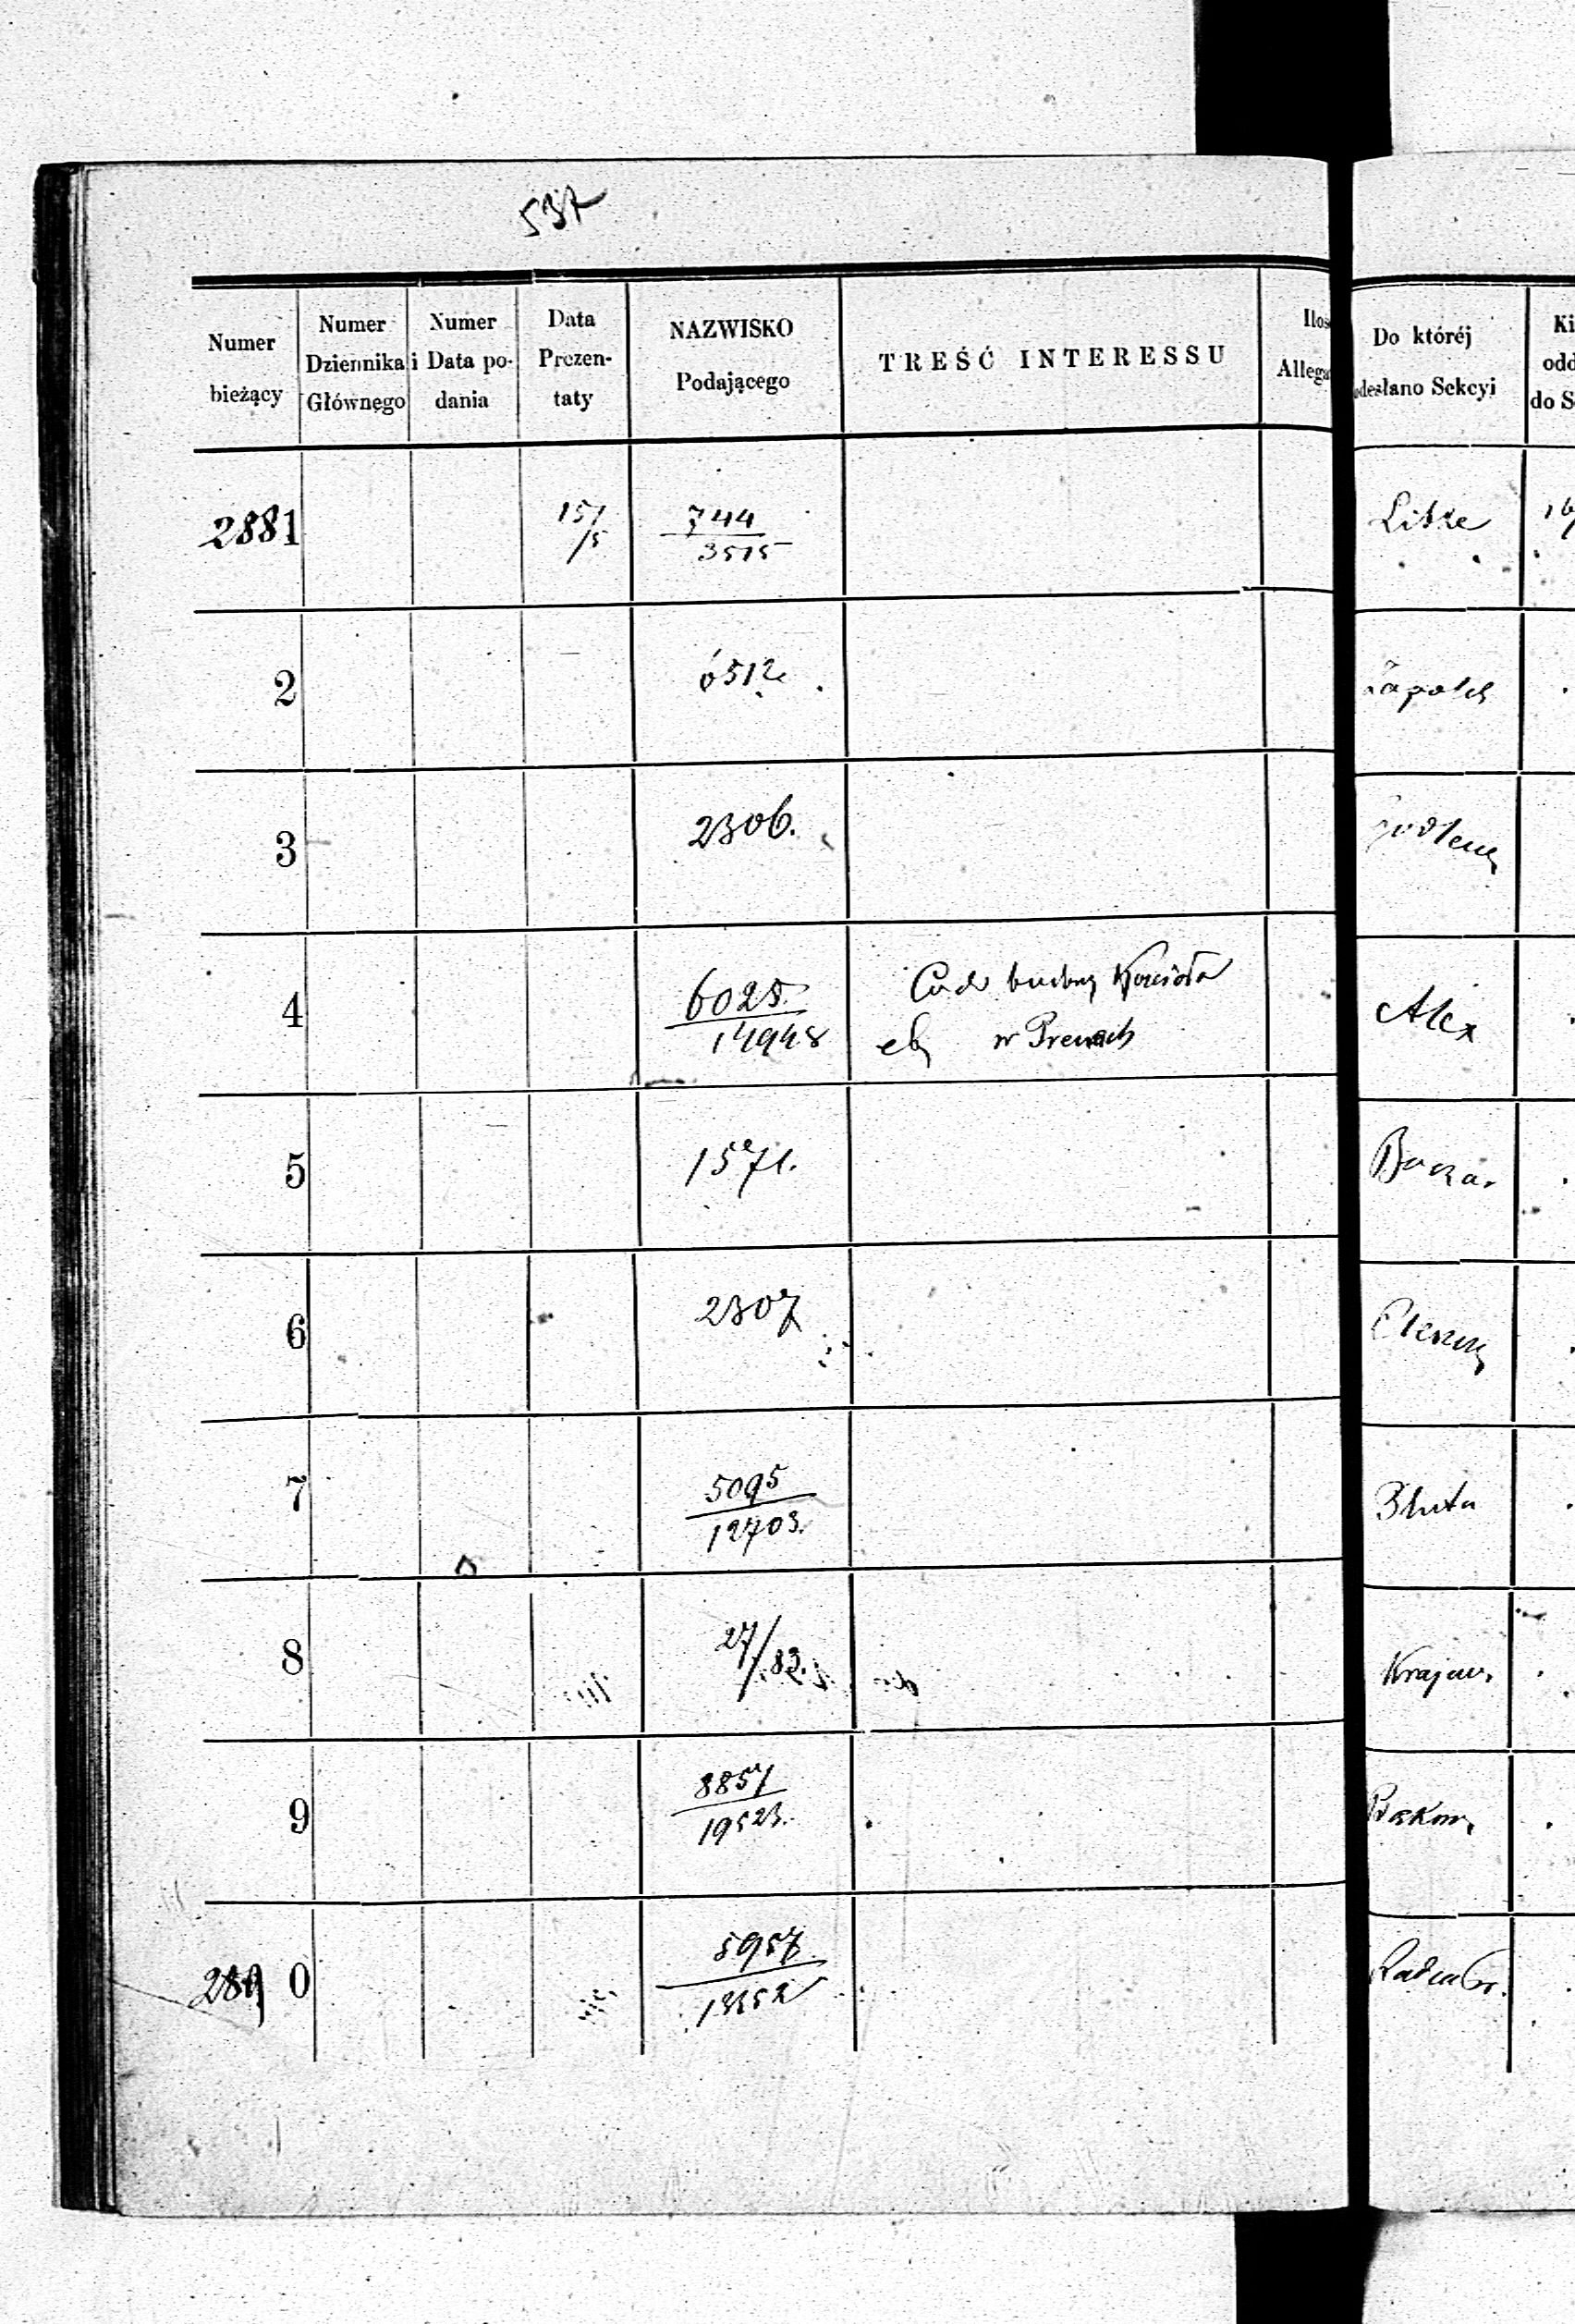 537
Numer bieżący
Numer Dziennika Głównego
Numer i Data podania
Data Prezentaty
NAZWISKO Podającego
TREŚĆ INTERESSU
Iloś Allega
Do któréj odesłano Sekcyi
Ki odd do S
2881 15/5 744/3515 Litke 16/
2 6512
3 2306.
4 6025/14948 budowy Kościoła Alex
w Prenach
5 1571.
6 2307
7 5095/12703. Pluta
8 27/83. Krajew.
9 8857/19523. Bakow.
2890 5957/13352